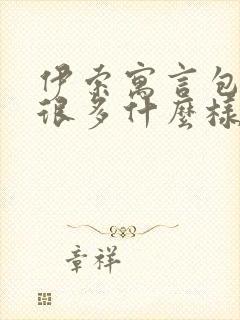 伊索寓言包
很多什麼樣
章祥